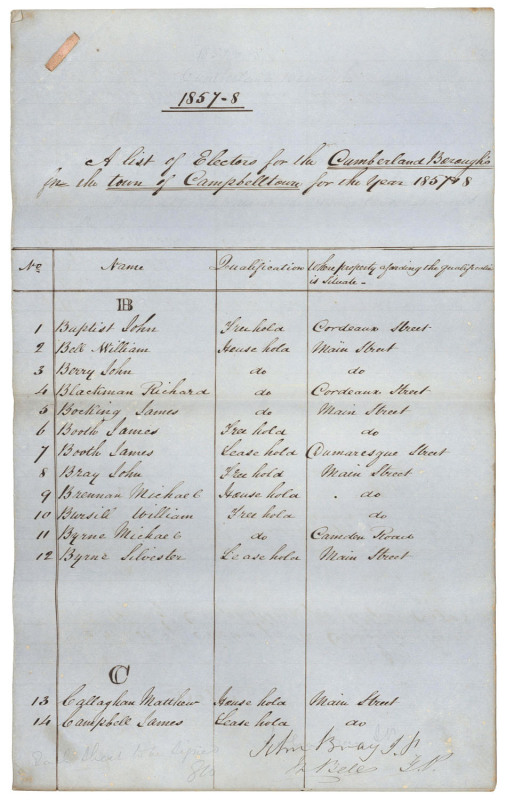 1857-8
A list of Electors for the Cumberland Boroughs
for the town of Campbelltown for the Year 1857-8
No Name Qualification Where property affording the qualification
is Situate -
B
1 Baptist John Free hold Cordeaux Street
2 Bell William House hold Main Street
3 Berry John do do
4 Blackman Richard do Cordeaux Street
5 Bocking James do Main Street
6 Booth James Free hold do
7 Booth James Lease hold Dumaresque Street
8 Bray John Free hold Main Street
9 Brennan Michael House hold do
10 Bursill William Free hold do
11 Byrne Michael do Camden Road
12 Byrne Silvester Lease hold Main Street
C
13 Callaghan Matthew House hold Main Street
14 Campbell James Lease hold do
John Bray J.P.
Bell J.P.